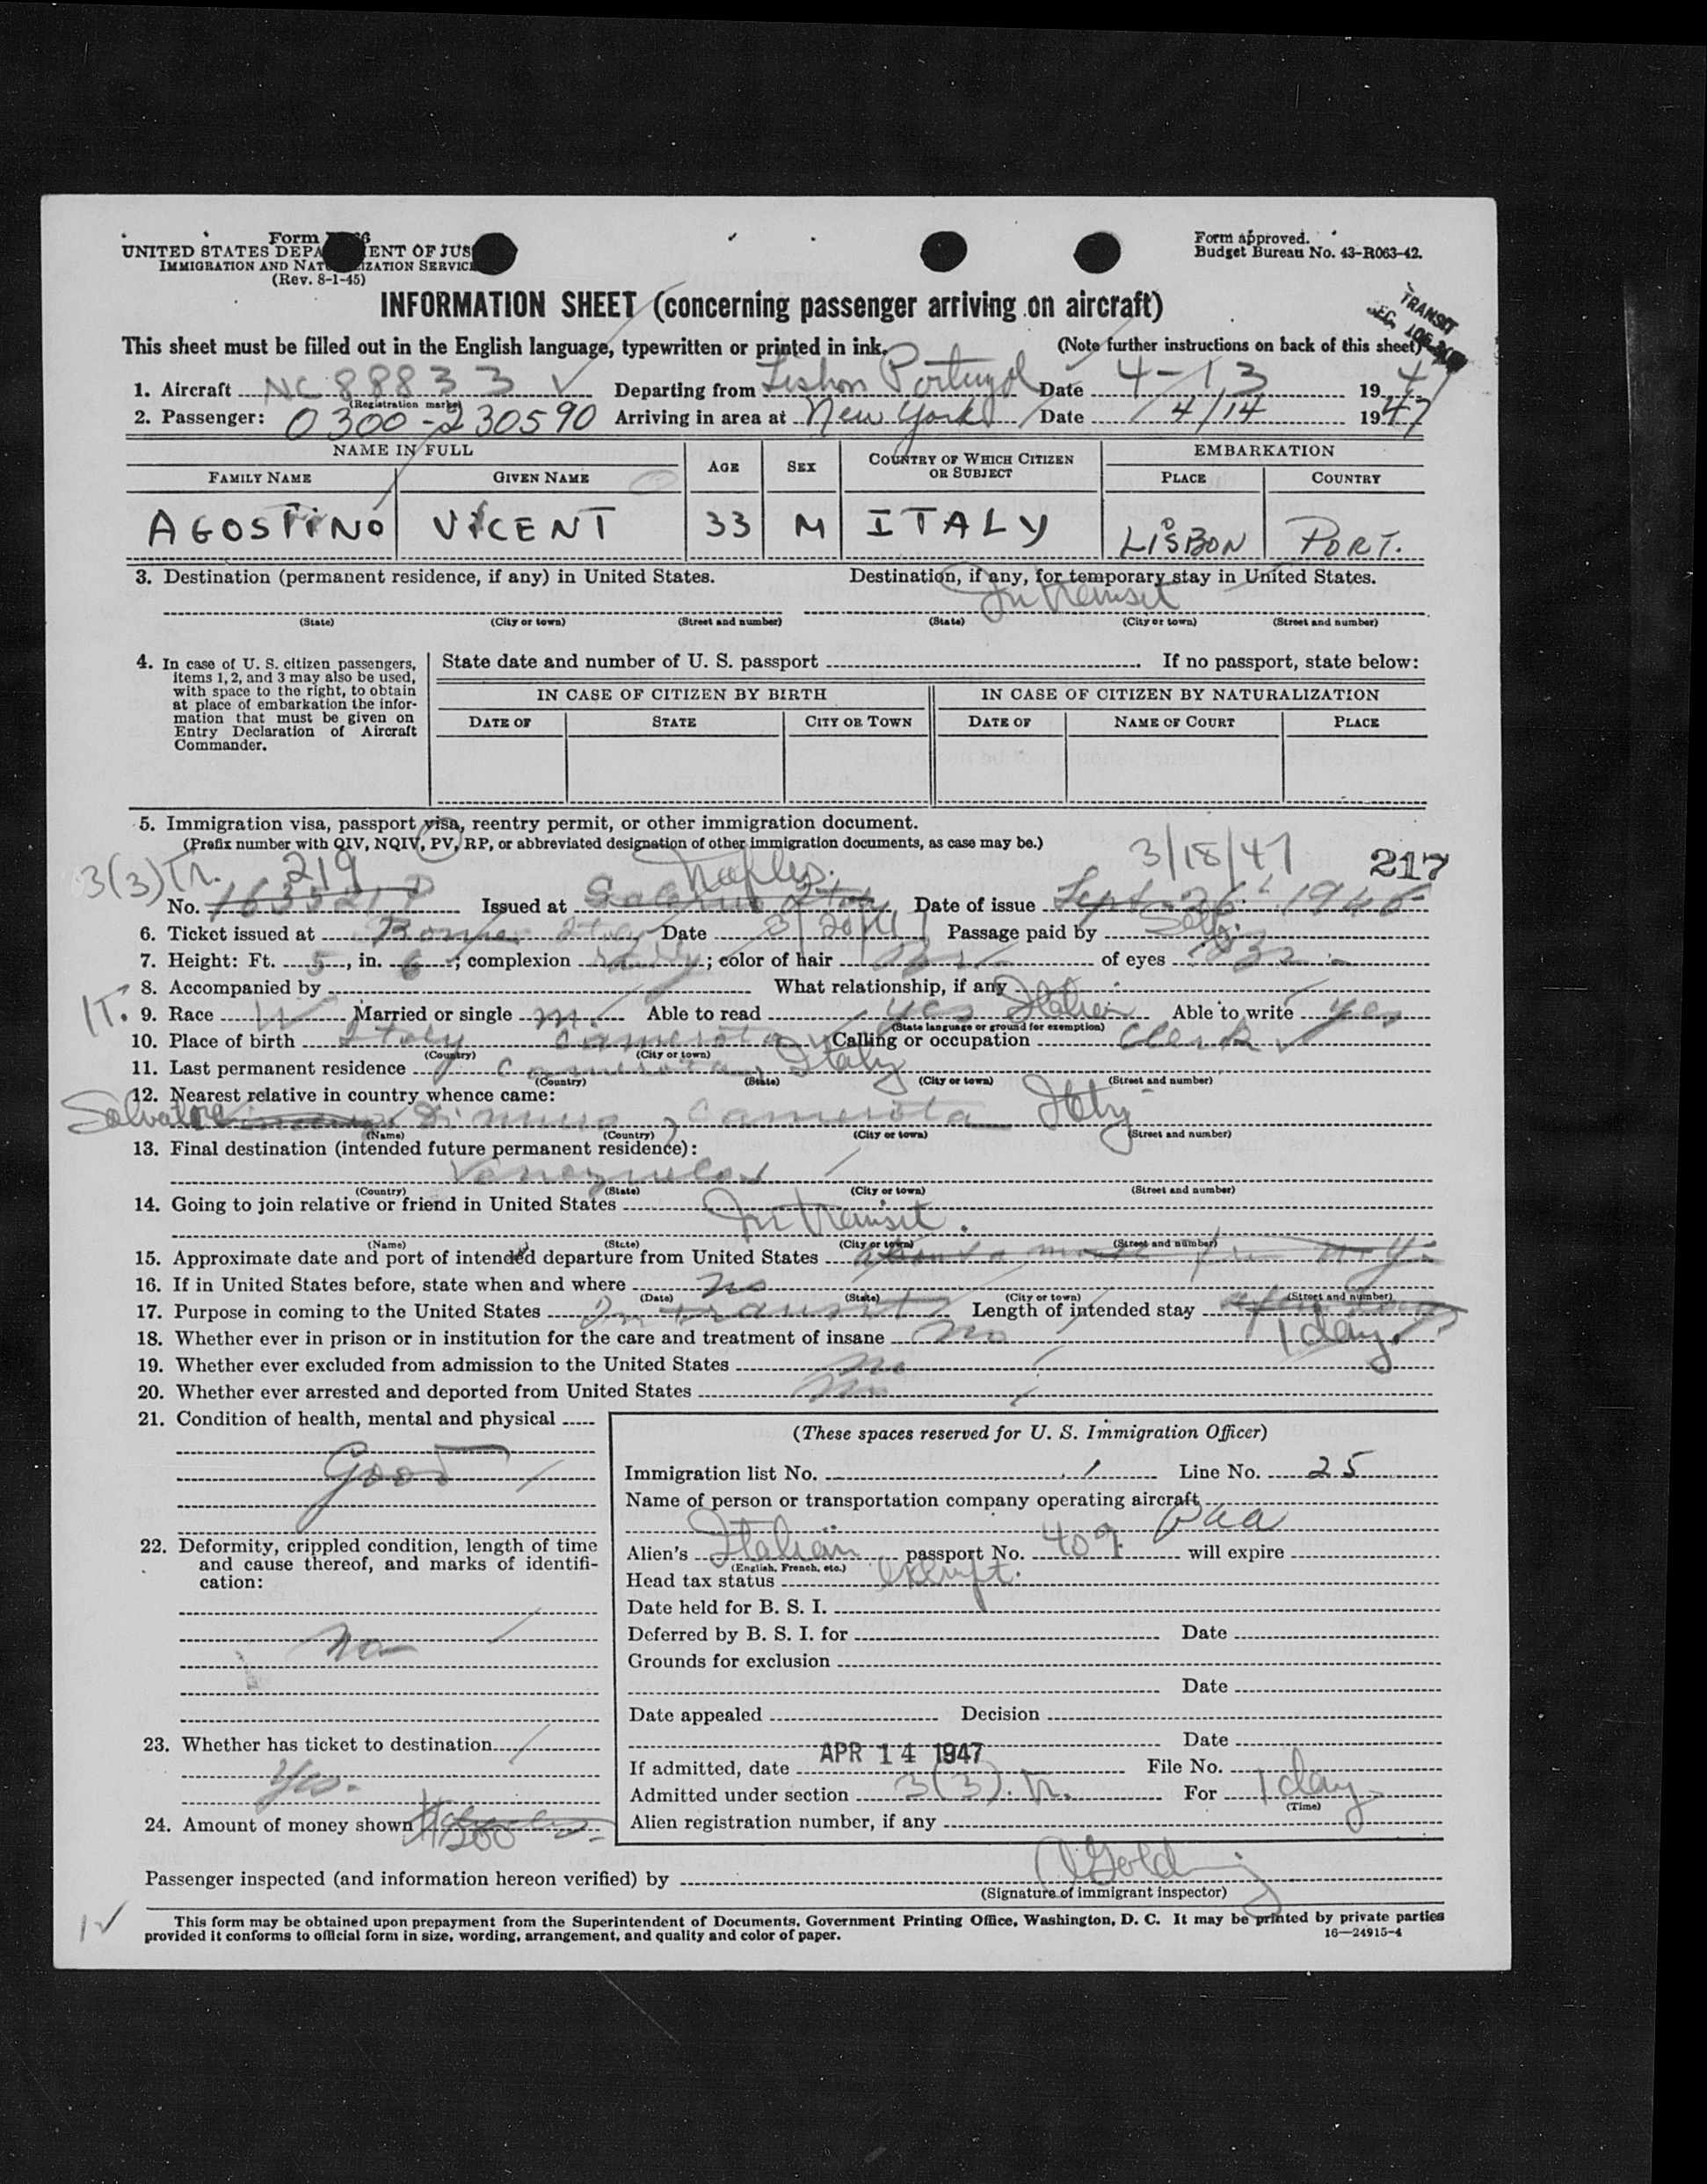 Form I-466
UNITED STATES DEPARTMENT OF JUSTICE
IMMIGRATION AND NATURALIZATION SERVICE
(Rev. 8-1-45)
Form approved.
Budget Bureau No. 43-R063-42.
INFORMATION SHEET (concerning passenger arriving on aircraft)
TRANSIT
This sheet must be filled out in the English language, typewritten or printed in ink. (Note further instructions on back of this sheet)
1. Aircraft NC 88833 Departing from Lisbon Portugal Date 4-13 1947
(Registration marks)
2. Passenger: 0300-230590 Arriving in area at New York Date 4/14 1947
NAME IN FULL AGE SEX COUNTRY OF WHICH CITIZEN OR SUBJECT EMBARKATION
FAMILY NAME GIVEN NAME PLACE COUNTRY
AGOSTINO VICENT 33 M ITALY LISBON PORT.
3. Destination (permanent residence, if any) in United States. Destination, if any, for temporary stay in United States.
In transit
(State) (City or town) (Street and number) (State) (City or town) (Street and number)
4. In case of U. S. citizen passengers, items 1, 2, and 3 may also be used, with space to the right, to obtain at place of embarkation the information that must be given on Entry Declaration of Aircraft Commander.
State date and number of U. S. passport If no passport, state below:
IN CASE OF CITIZEN BY BIRTH IN CASE OF CITIZEN BY NATURALIZATION
DATE OF STATE CITY OR TOWN DATE OF NAME OF COURT PLACE
5. Immigration visa, passport visa, reentry permit, or other immigration document.
(Prefix number with QIV, NQIV, PV, RP, or abbreviated designation of other immigration documents, as case may be.)
3(3) Tr. 219 Naples. 3/18/47 217
No. 1635217 Issued at Salerno Italy Date of issue Sept. 26 1946
6. Ticket issued at Rome Italy Date 3/20/47 Passage paid by Self
7. Height: Ft. 5, in. 6; complexion ; color of hair Br of eyes Br
8. Accompanied by What relationship, if any
IT. 9. Race W Married or single m. Able to read yes Italian Able to write yes
(State language or ground for exemption)
10. Place of birth Italy Camerota Calling or occupation Clerk
(Country) (City or town)
11. Last permanent residence Camerota, Italy
(Country) (State) (City or town) (Street and number)
12. Nearest relative in country whence came:
Salvatore Di Muro, Camerota Italy
(Name) (Country) (City or town) (Street and number)
13. Final destination (intended future permanent residence):
Venezuela
(Country) (State) (City or town) (Street and number)
14. Going to join relative or friend in United States In transit.
(Name) (State) (City or town) (Street and number)
15. Approximate date and port of intended departure from United States N-Y.
16. If in United States before, state when and where no
(Date) (State) (City or town) (Street and number)
17. Purpose in coming to the United States In transit Length of intended stay
1 day.
18. Whether ever in prison or in institution for the care and treatment of insane No
19. Whether ever excluded from admission to the United States No
20. Whether ever arrested and deported from United States No
21. Condition of health, mental and physical
Good
22. Deformity, crippled condition, length of time and cause thereof, and marks of identification:
no
23. Whether has ticket to destination
Yes.
24. Amount of money shown $200
(These spaces reserved for U. S. Immigration Officer)
Immigration list No. 1 Line No. 25
Name of person or transportation company operating aircraft
Paa
Alien's Italian passport No. 409 will expire
(English, French, etc.)
Head tax status Exempt.
Date held for B. S. I.
Deferred by B. S. I. for Date
Grounds for exclusion
Date
Date appealed Decision
Date
If admitted, date APR 14 1947 File No.
Admitted under section 3(3). Tr. For 1 day
(Time)
Alien registration number, if any
Passenger inspected (and information hereon verified) by
(Signature of immigrant inspector)
This form may be obtained upon prepayment from the Superintendent of Documents, Government Printing Office, Washington, D. C. It may be printed by private parties
provided it conforms to official form in size, wording, arrangement, and quality and color of paper. 16—24915-4